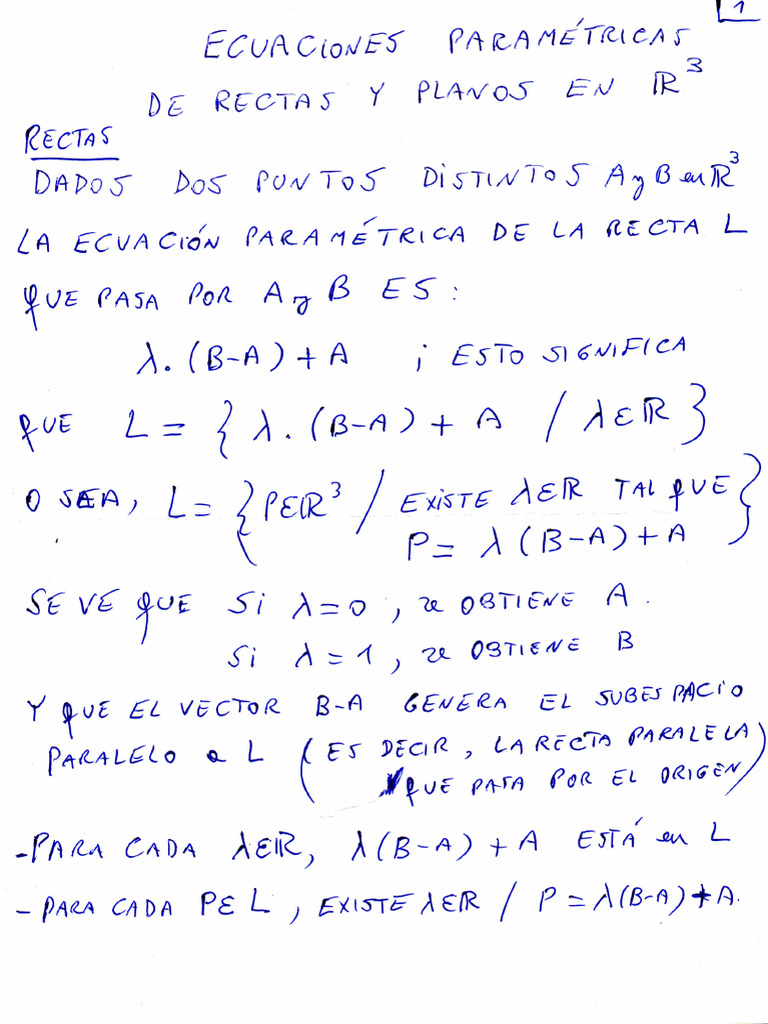 1
ECUACIONES PARAMÉTRICAS
DE RECTAS Y PLANOS EN ℝ³
RECTAS
DADOS DOS PUNTOS DISTINTOS A y B en ℝ³
LA ECUACIÓN PARAMÉTRICA DE LA RECTA L
QUE PASA POR A y B ES:
λ. (B-A) + A ; ESTO SIGNIFICA
QUE L = { λ. (B-A) + A / λ∈ℝ }
O SEA, L = { P∈ℝ³ / EXISTE λ∈ℝ TAL QUE
P = λ (B-A) + A }
SE VE QUE SI λ=0, se OBTIENE A.
SI λ=1, se OBTIENE B
Y QUE EL VECTOR B-A GENERA EL SUBESPACIO
PARALELO a L (ES DECIR, LA RECTA PARALELA
QUE PASA POR EL ORIGEN)
-PARA CADA λ∈ℝ, λ(B-A) + A ESTÁ en L
- PARA CADA P∈L, EXISTE λ∈ℝ / P = λ(B-A) + A.